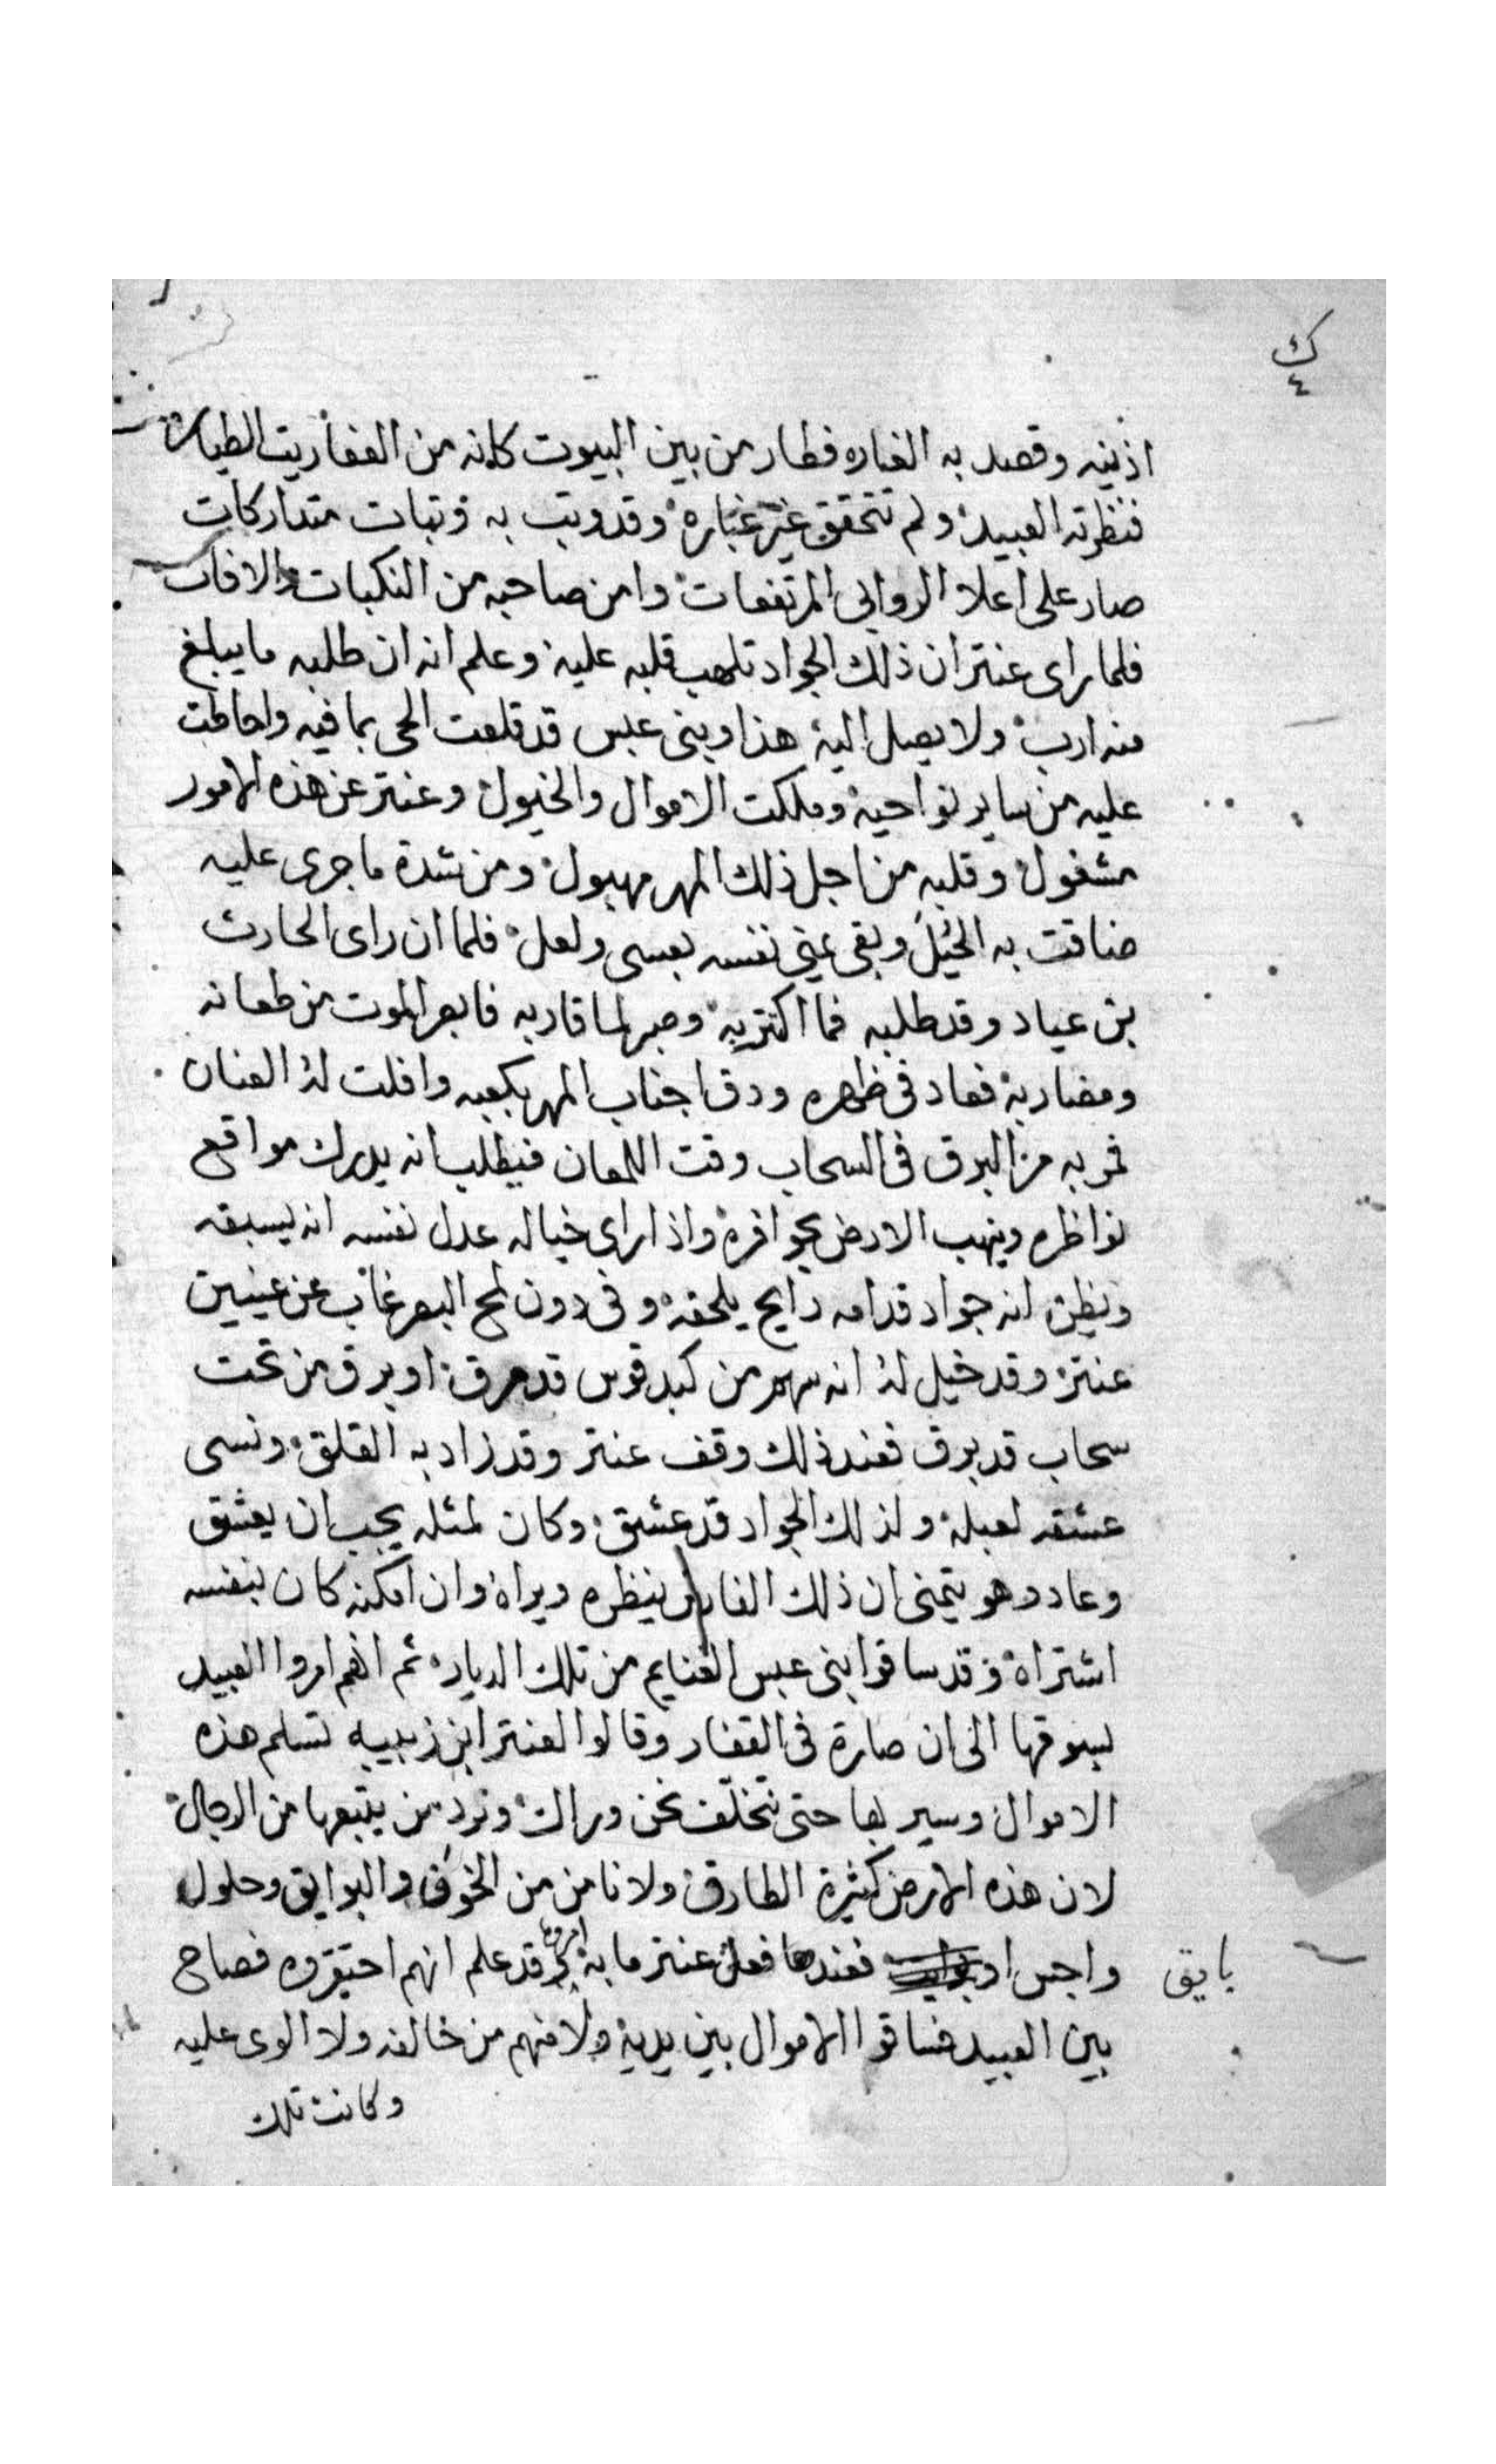 ك
٤
اذنيه وقصد به الغاره فطار من بين البيوت كانه من العفاريت الطياره
فنظرته العبيد ولم تتحقق غير غباره وقد وتب به وتبات متداركات
صار على اعلا الروابى المرتفعات وامن صاحبه من النكبات والافات
فلما راى عنتر ان ذلك الجواد تلهب قلبه عليه وعلم انه ان طلبه ما يبلغ
منه ارب ولا يصل اليه هذا وبنى عبس قد قلعت الحى بما فيه واحاطت
عليه من ساير نواحيه وملكت الاموال والخيول وعنتر عن هذه الامور
مشغول وقلبه من اجل ذلك المهر مهبول ومن شدة ما جرى عليه
ضاقت به الحيل وبقى يمنى نفسه بعسى ولعل فلما ان راى الحارث
بن عباد وقد طلبه فما اكترى به وصبر لما قاربه فابصر الموت من طعانه
ومضاربه فعاد فى ظهره ودق اجناب المهر بكعبه وافلت له العنان
فمر به مر البرق فى السحاب وقت اللمعان فيطلب انه يدرك مواقع
نواظره وينهب الارض بحوافره واذا راى خياله عدل نفسه انه يسبقه
ويظن انه جواد قدامه رايح يلحقه وفى دون لمح البصر غاب عن عينين
عنتر وقد خيل له انه سهم من كبد قوس قد مرق او برق من تحت
سحاب قد برق فعند ذلك وقف عنتر وقد زاد به القلق ونسى
عشقه لعبلة ولذلك الجواد قد عشق وكان لمثله يجب ان يعشق
وعاد وهو يتمنى ان ذلك الفارس ينظره ويراه وان امكنه كان بنفسه
اشتراه وقد ساقوا بنى عبس الغنايم من تلك الديار ثم انهم امروا العبيد
بسوقها الى ان صارة فى القفار وقالوا لعنتر ابن زبيبه تسلم هذه
الاموال وسير بها حتى نتخلف نحن وراك ونرد من يتبعها من الرجال
لان هذه الارض كثيرة الطارق ولا نامن من الخوف والبوايق وحلول
واجس او فعندها فعل عنتر ما به امروه وقد علم انهم احتقروه فصاح
بايق
بين العبيد فساقوا الاموال بين يديه ولا منهم من خالفه ولا الوى عليه
وكانت تلك